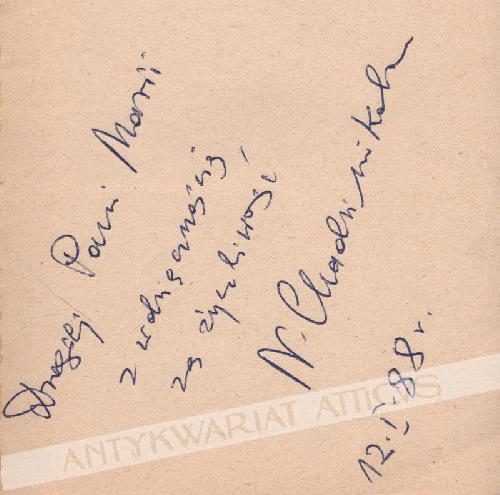 Drogiej Pani Marii
z wdzięcznością
za życzliwość
N. Chadzinikolau
12.I.88 r.
ANTYKWARIAT ATTICUS